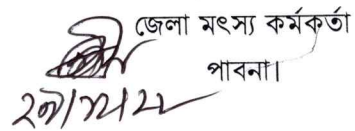 জেলা মৎস্য কর্মকর্তা
পাবনা।